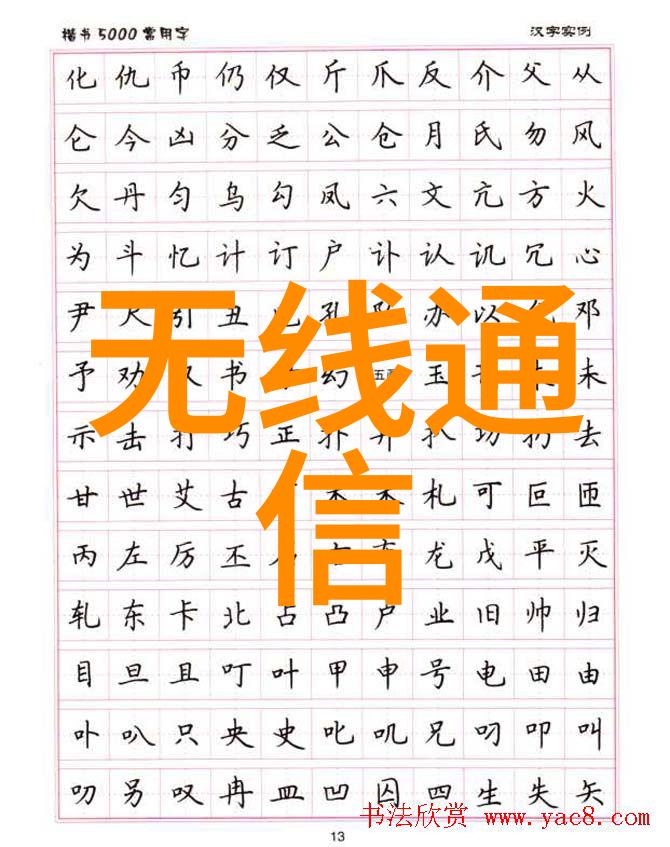 楷书5000常用字 汉字实例
化仇币仍仅斤爪反介父从
仑今凶分乏公仓月氏勿风
欠丹匀乌勾凤六文亢方火
为斗忆计订户讣认讥冗心
尹尺引丑孔办以邓
予劝双书幻五画玉未
示击打巧正扑扒功扔去
甘世艾古札可叵匝
丙左厉丕龙戊平灭
轧东卡北占凸卢业旧帅归
目旦且叮叶甲申号电田由
卟叭只央史叱叽兄叼叩叫
叻另叹冉皿凹囚四生失矢
无线通
信
书法欣赏 www.yac8.com
13